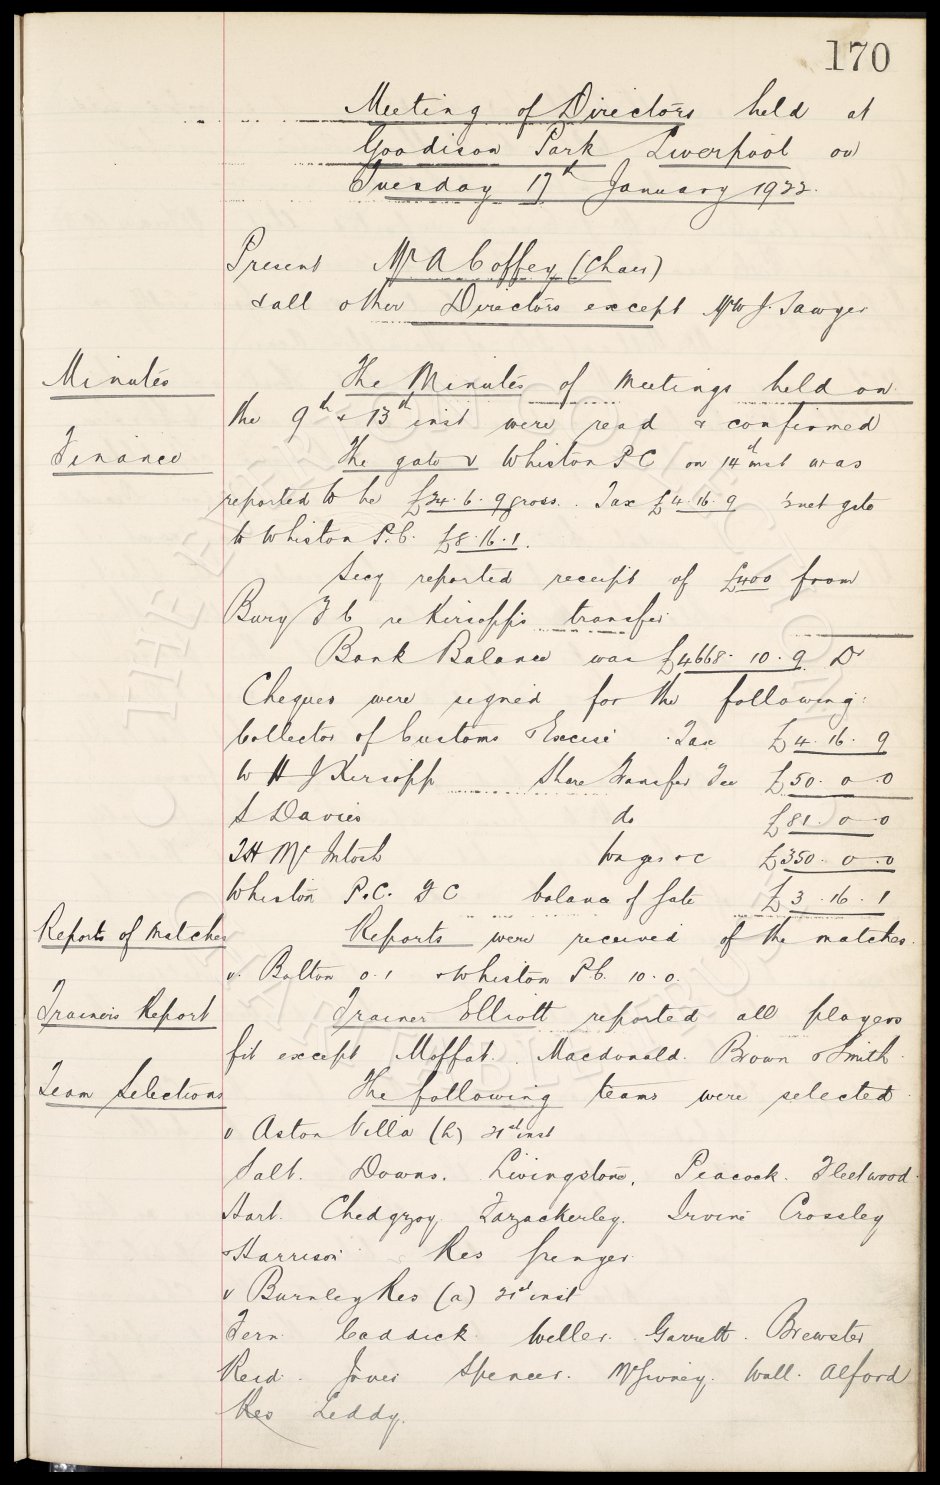 170
Meeting of Directors held at
Goodison Park Liverpool on
Tuesday 17th January 1922.
Present Mr A Coffey (Chair)
& all other Directors except Mr W J. Sawyer
Minutes The Minutes of meetings held on
the 9th & 13th inst were read & confirmed
Finance The gate v Whiston P C on 14th inst was
reported to be £24. 6. 9 gross. Tax £4. 16. 9 ½ net gate
to Whiston P. C. £8. 16. 1.
Secy reported receipt of £400 from
Bury F C re Kirsopp's transfer
Bank Balance was £4668. 10. 9. Dr
Cheques were signed for the following:
Collector of Customs & Excise Tax £4. 16. 9
W H J Kirsopp Share Transfer Fee £50. 0. 0
S Davies do £81. 0 0
T H Mc Intosh Wages &c £350. 0. 0
Whiston P. C. F C balance of Gate £3. 16. 1
Reports of Matches Reports were received of the matches.
v. Bolton 0. 1 & Whiston P. C. 10. 0.
Trainers Report Trainer Elliott reported all players
fit except Moffat. Macdonald. Brown & Smith.
Team Selections The following teams were selected
v Aston Villa (h) 21st inst
Salt. Downs. Livingstone, Peacock. Fleetwood.
Hart. Chedgzoy. Fazackerley. Irvine Crossley
& Harrison Res Grenyer
v Burnley Res (a) 21st inst
Fern. Caddick. Weller. Garrett. Brewster
Reid. Jones Spencer. McGivney. Wall. Alford
Res Leddy.
THE EVERTON COLLECTION
CHARITABLE TRUST